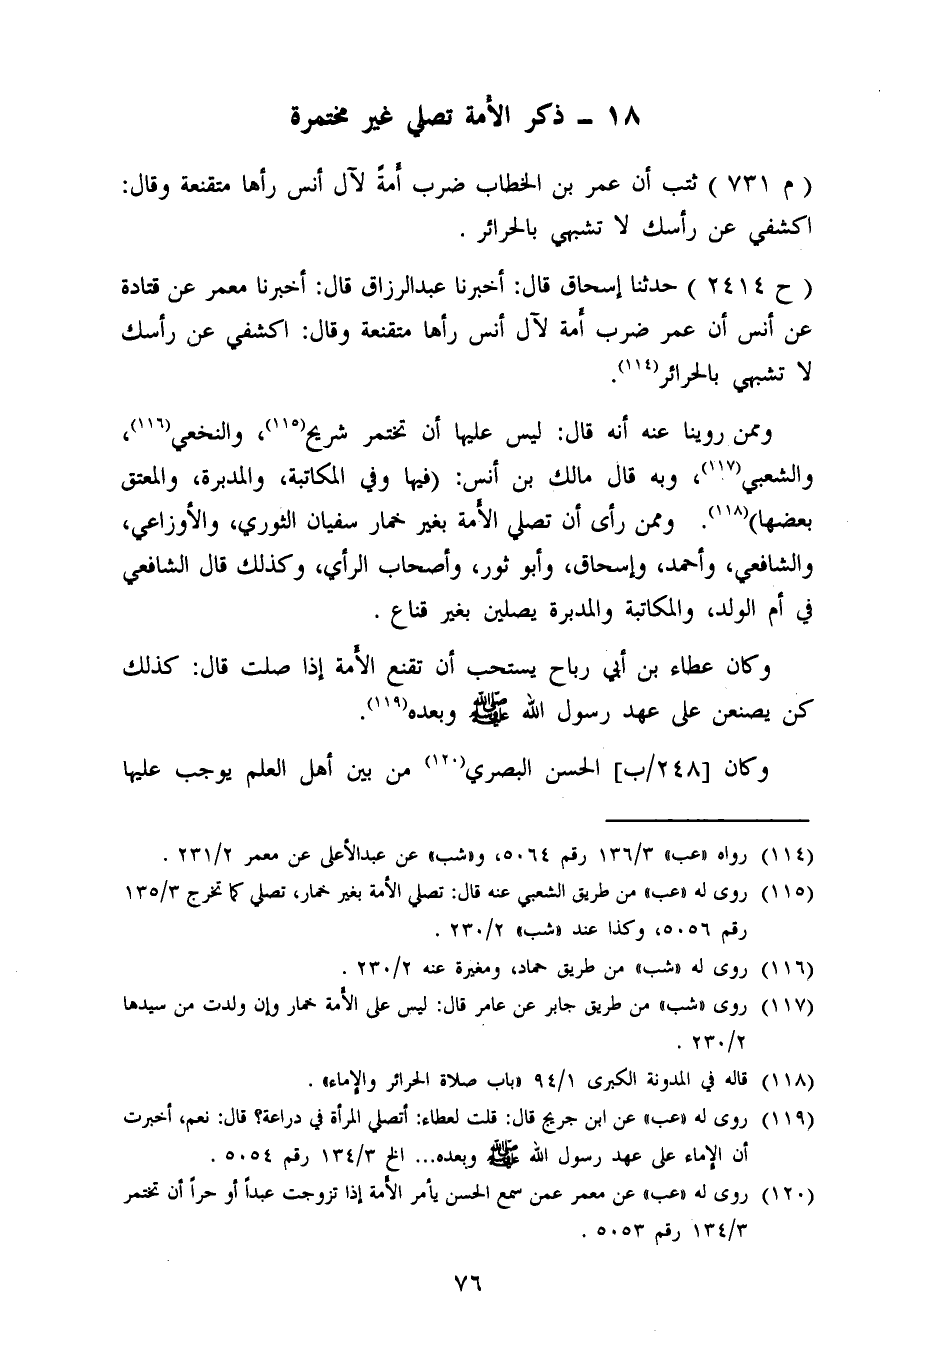 ١٨ - ذكر الأمة تصلي غير مختمرة
( م ٧٣١ ) ثتب أن عمر بن الخطاب ضرب أمةً لآل أنس رأها متقنعة وقال:
اكشفي عن رأسك لا تشبهي بالحرائر .
( ح ٢٤١٤ ) حدثنا إسحاق قال: أخبرنا عبدالرزاق قال: أخبرنا معمر عن قتادة
عن أنس أن عمر ضرب أمة لآل أنس رأها متقنعة وقال: اكشفي عن رأسك
لا تشبهي بالحرائر(١١٤).
وممن روينا عنه أنه قال: ليس عليها أن تختمر شريح(١١٥)، والنخعي(١١٦)،
والشعبي(١١٧)، وبه قال مالك بن أنس: (فيها وفي المكاتبة، والمدبرة، والمعتق
بعضها)(١١٨). وممن رأى أن تصلي الأمة بغير خمار سفيان الثوري، والأوزاعي،
والشافعي، وأحمد، وإسحاق، وأبو ثور، وأصحاب الرأي، وكذلك قال الشافعي
في أم الولد، والمكاتبة والمدبرة يصلين بغير قناع .
وكان عطاء بن أبي رباح يستحب أن تقنع الأمة إذا صلت قال: كذلك
كن يصنعن على عهد رسول الله ﷺ وبعده(١١٩).
وكان [٢٤٨/ب] الحسن البصري(١٢٠) من بين أهل العلم يوجب عليها
(١١٤) رواه «عب» ١٣٦/٣ رقم ٥٠٦٤، و«شب» عن عبدالأعلى عن معمر ٢٣١/٢ .
(١١٥) روى له «عب» من طريق الشعبي عنه قال: تصلي الأمة بغير خمار، تصلي كما تخرج ١٣٥/٣
رقم ٥٠٥٦، وكذا عند «شب» ٢٣٠/٢ .
(١١٦) روى له «شب» من طريق حماد، ومغيرة عنه ٢٣٠/٢ .
(١١٧) روى «شب» من طريق جابر عن عامر قال: ليس على الأمة خمار وإن ولدت من سيدها
٢٣٠/٢ .
(١١٨) قاله في المدونة الكبرى ٩٤/١ «باب صلاة الحرائر والإماء» .
(١١٩) روى له «عب» عن ابن جريج قال: قلت لعطاء: أتصلي المرأة في دراعة؟ قال: نعم، أخبرت
أن الإماء على عهد رسول الله ﷺ وبعده... الخ ١٣٤/٣ رقم ٥٠٥٤ .
(١٢٠) روى له «عب» عن معمر عمن سمع الحسن يأمر الأمة إذا تزوجت عبداً أو حراً أن تختمر
١٣٤/٣ رقم ٥٠٥٣ .
٧٦